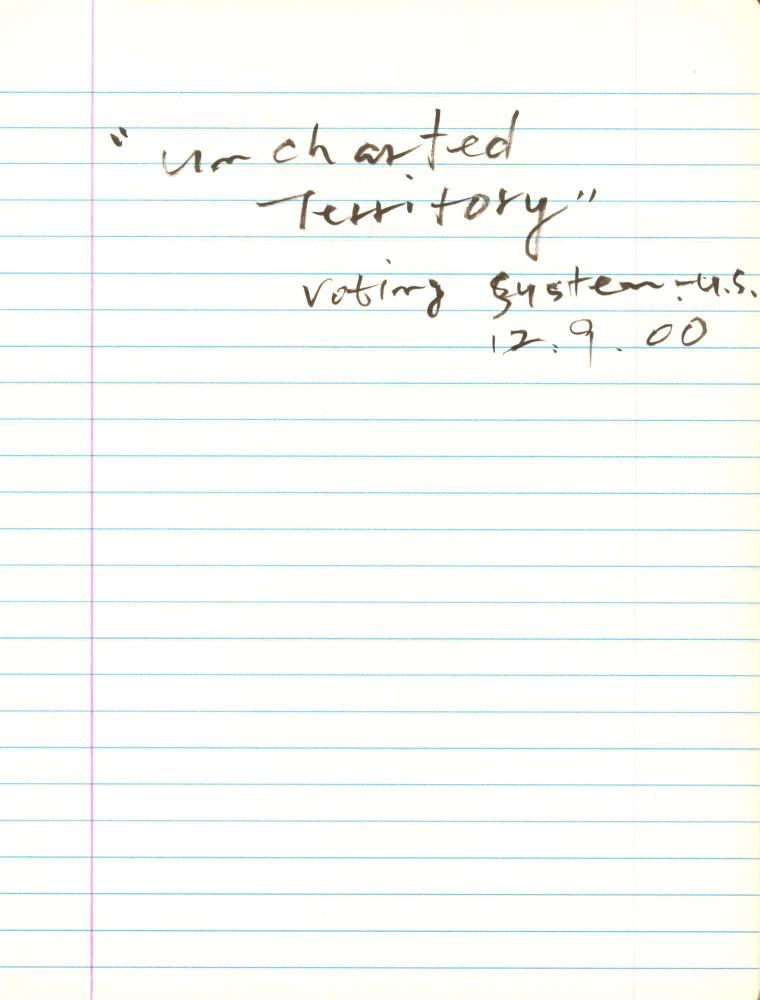 "Uncharted
Territory"
Voting System - U.S.
12.9.00